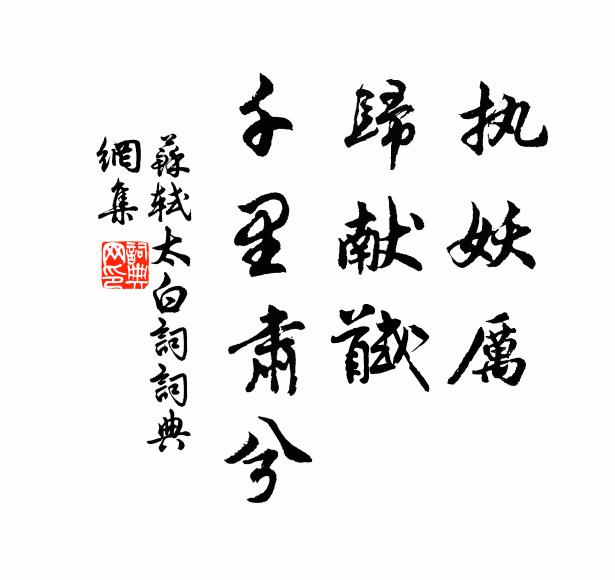 执妖厲
歸献馘
千里肅兮
蘇軾太白詞詞典
網集
詞典
网印